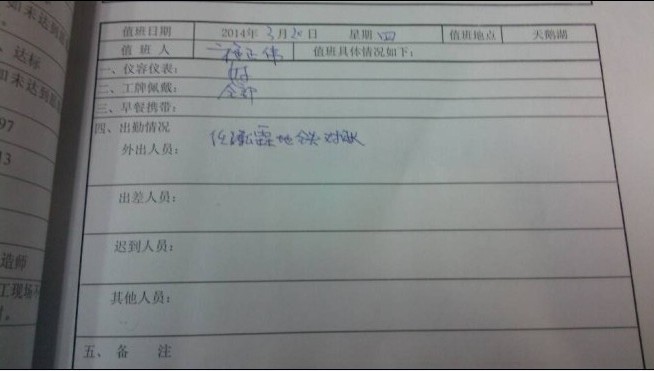 如未达到
达标
如未达到
97
13
造师
工现场
值班日期 2014年3月20日 星期四 值班地点 天鹅湖
值班人 值班具体情况如下:
一、仪容仪表: 好
二、工牌佩戴: 全部
三、早餐携带:
四、出勤情况
外出人员: 地铁对账
出差人员:
迟到人员:
其他人员:
五、备 注